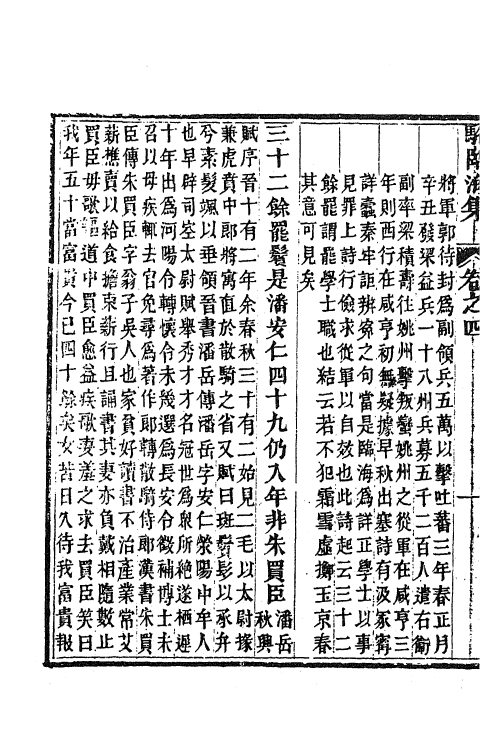 駱臨海集 卷之四
將軍郭待封爲副領兵五萬以擊吐蕃三年春正月
辛丑發梁益兵一十八州兵募五千二百人遣右衛
副率梁積壽往姚州擊叛蠻姚州之從軍在咸亨三
年則西行在咸亨初無疑據早秋出塞詩有汲冢寗
詳蠹秦牢詎辨寃之句當是臨海爲詳正學士以事
見罪上詩行儉求從軍以自效也此詩起云三十二
餘罷謂罷學士職也結云若不犯霜雪虛擲玉京春
其意可見矣
三十二餘罷鬢是潘安仁四十九仍入年非朱買臣 潘岳秋興
賦序晉十有二年余春秋三十有二始見二毛以太尉掾
兼虎賁中郎將寓直於散騎之省又賦曰斑鬢髟以承弁
兮素髮颯以垂領晉書潘岳傳潘岳字安仁滎陽中牟人
也早辟司空太尉賦舉秀才才名冠世爲衆所絶遂栖遲
十年出爲河陽令轉懷令未幾選爲長安令徵補博士未
召以母疾輒去官免尋爲著作郎轉散騎侍郎漢書朱買
臣傳朱買臣字翁子吳人也家貧好讀書不治產業常艾
薪樵賣以給食擔束薪行且誦書其妻亦負戴相隨數止
買臣毋歌謳道中買臣愈益疾歌妻羞之求去買臣笑曰
我年五十當富貴今已四十餘矣女苦日久待我富貴報